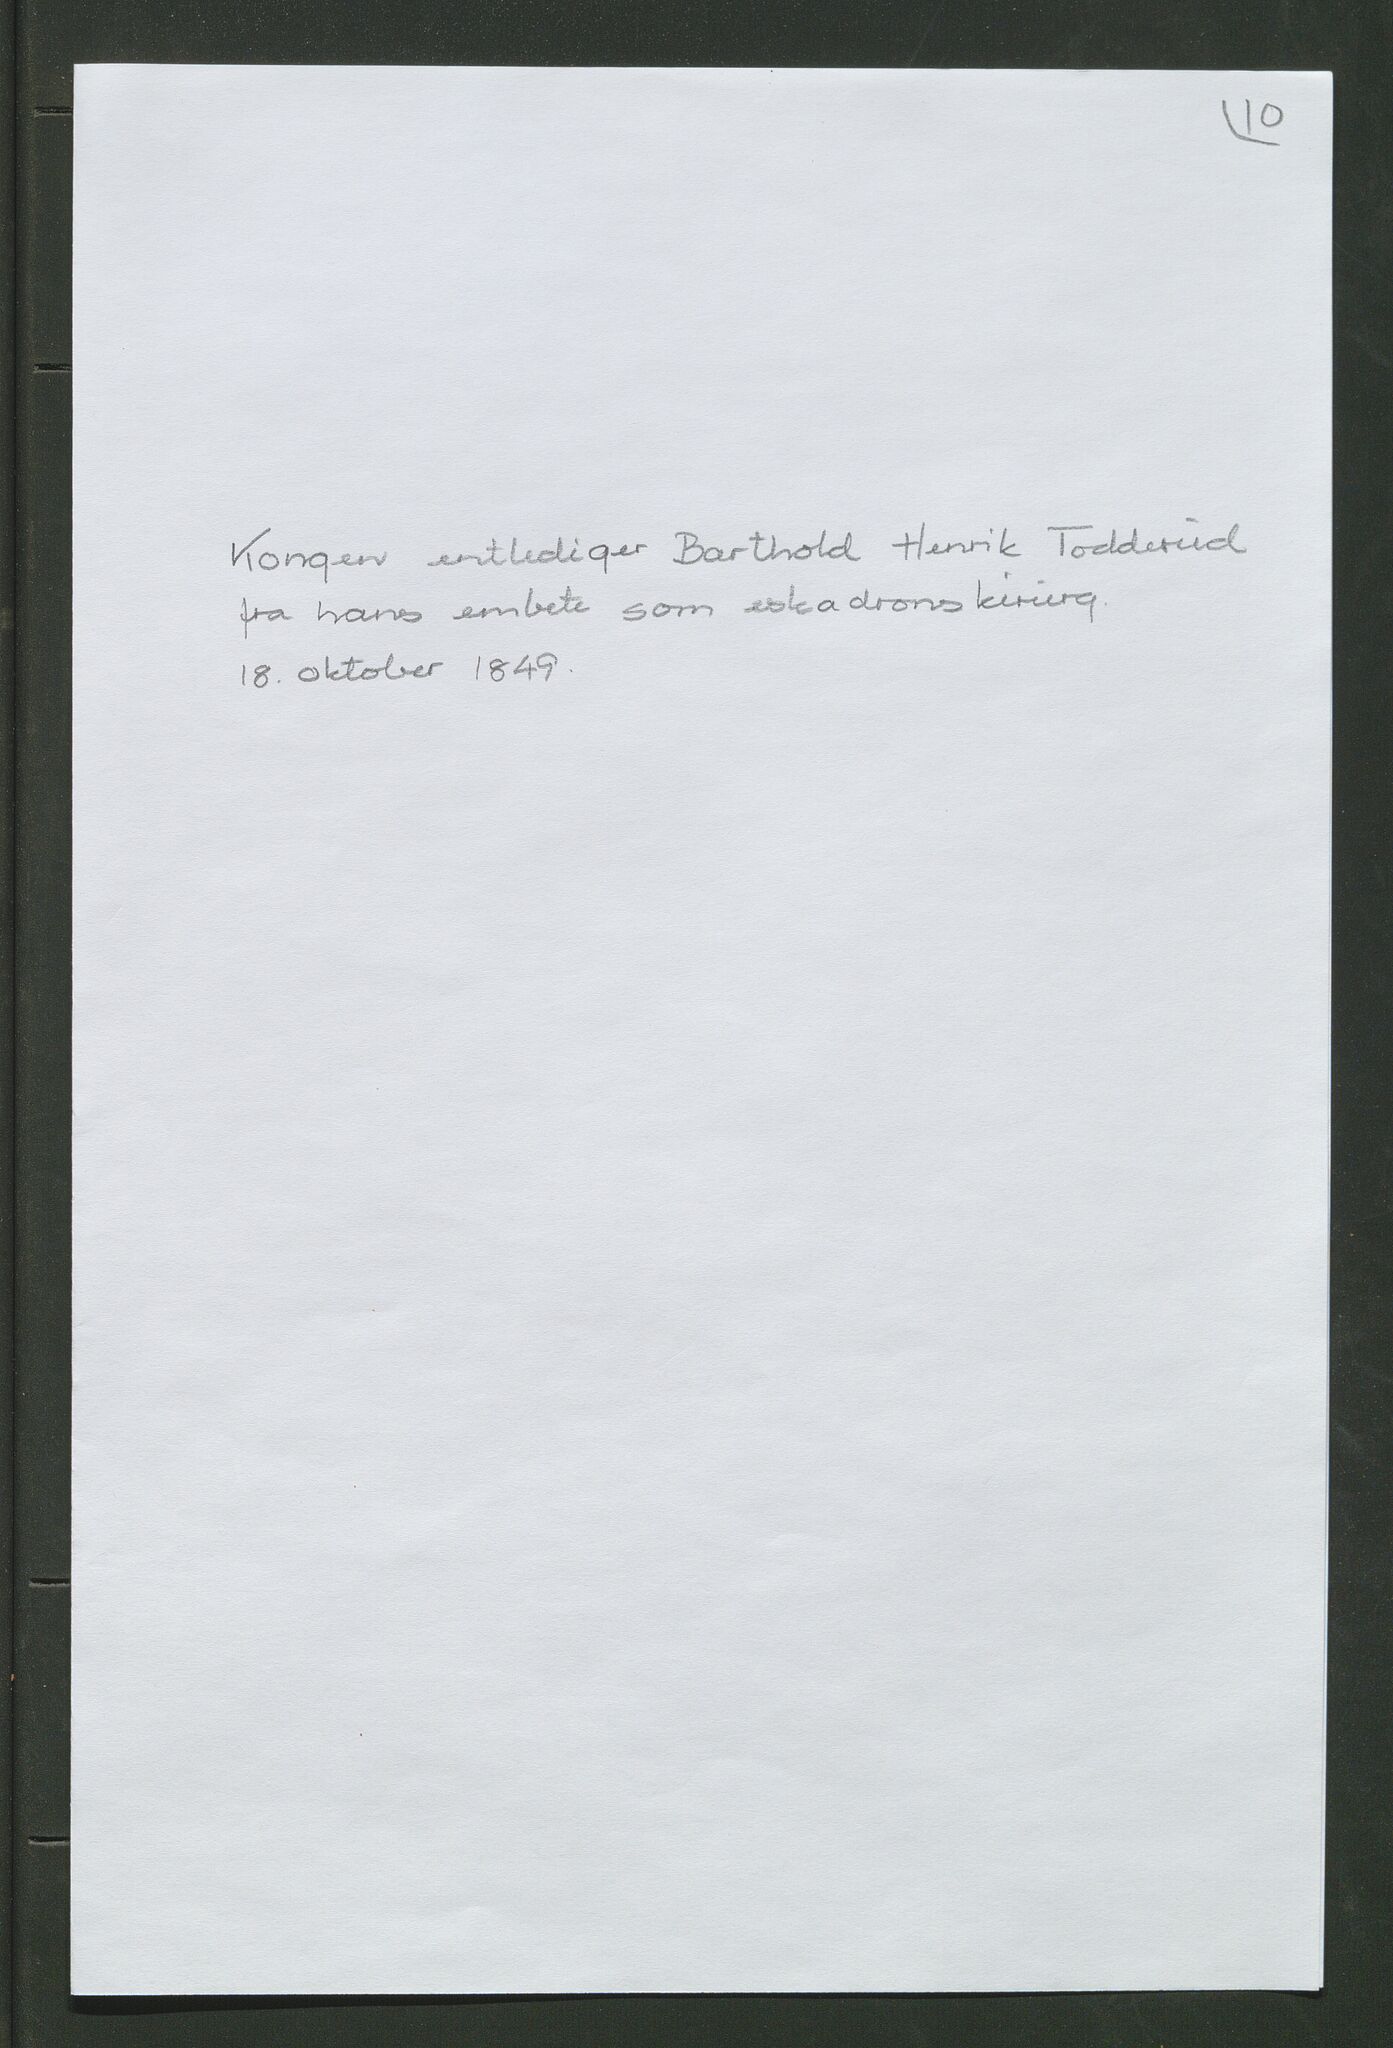 10
Kongen entlediger Barthold Henrik Todderud
fra hans embete som eskadronskirurg.
18. oktober 1849.